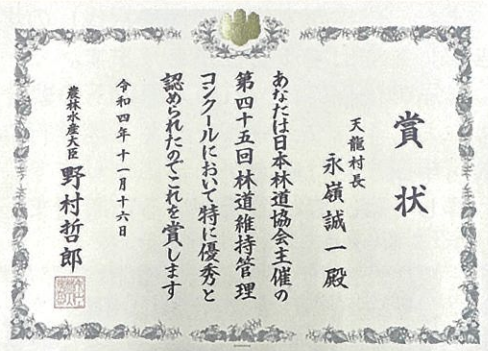 賞状
天龍村長
永嶺誠一殿
あなたは日本林道協会主催の
第四十五回林道維持管理
コンクールにおいて特に優秀と
認められたのでこれを賞します
令和四年十一月十六日
農林水産大臣 野村哲郎